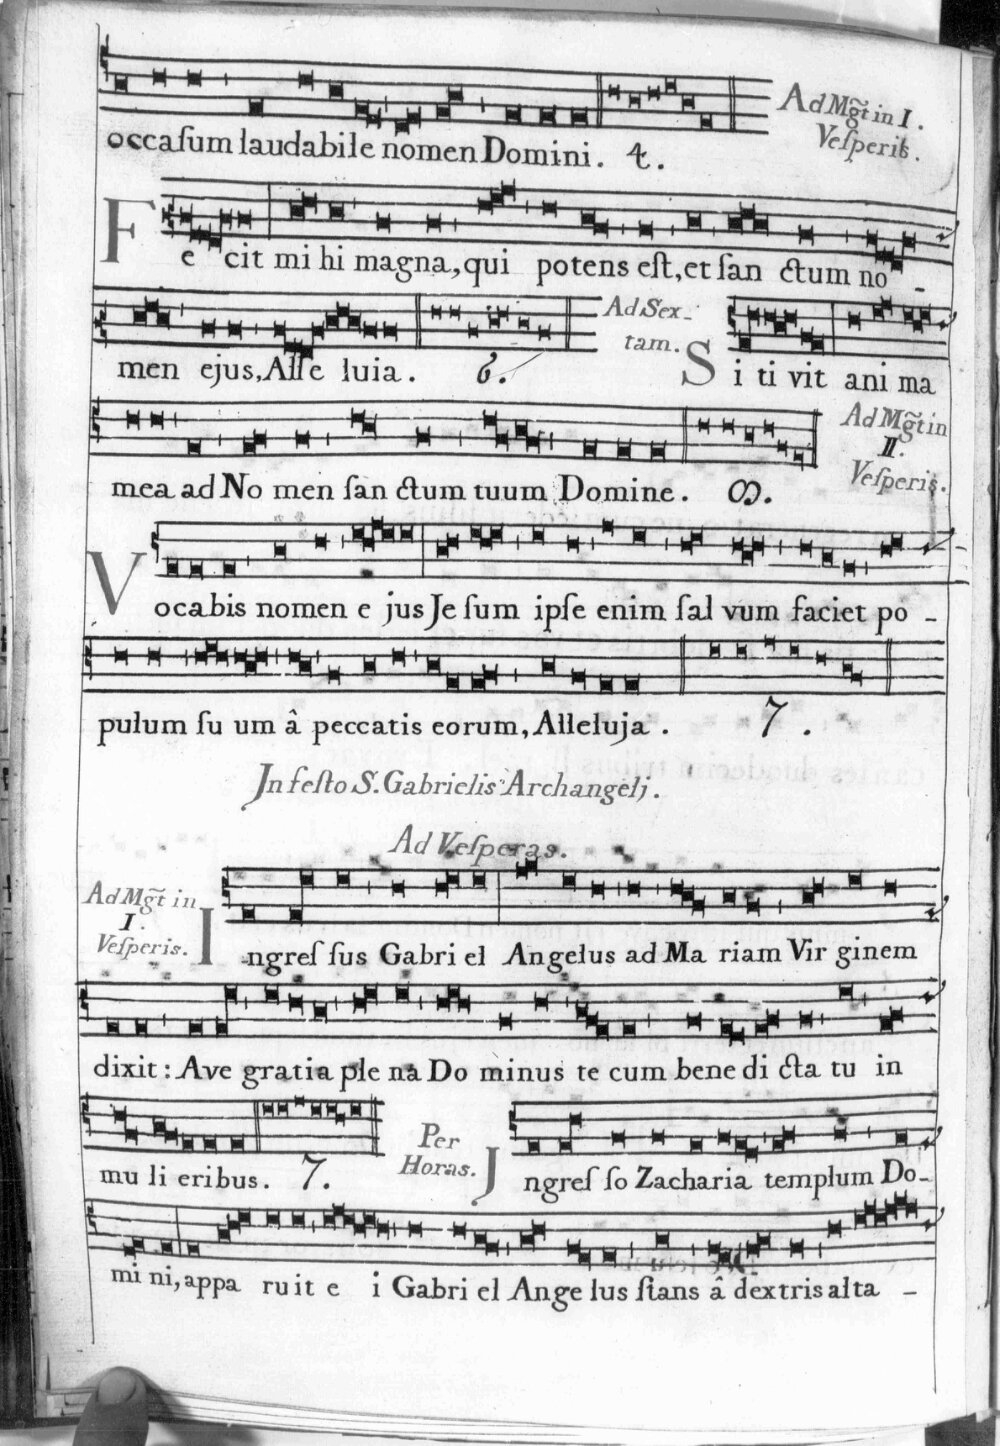 occaſum laudabile nomen Domini. 4.
Ad Mg̃t in I.
Veſperis.
Fe cit mi hi magna, qui potens eſt, et ſan ctum no -
men ejus, Alle luia. 6.
Ad Sex-
tam.
Si ti vit ani ma
mea ad No men ſan ctum tuum Domine. 8.
Ad Mg̃t in
II.
Veſperis.
Vocabis nomen e jus Je ſum ipſe enim ſal vum faciet po -
pulum ſu um â peccatis eorum, Alleluja. 7.
In feſto S. Gabrielis Archangelj.
Ad Veſperas.
Ad Mg̃t in
I.
Veſperis.
Ingreſ ſus Gabri el Angelus ad Ma riam Vir ginem
dixit: Ave gratia ple na Do minus te cum bene di cta tu in
mu li eribus. 7.
Per
Horas.
Jngreſ ſo Zacharia templum Do-
mi ni, appa ruit e i Gabri el Ange lus ſtans â dextris alta -